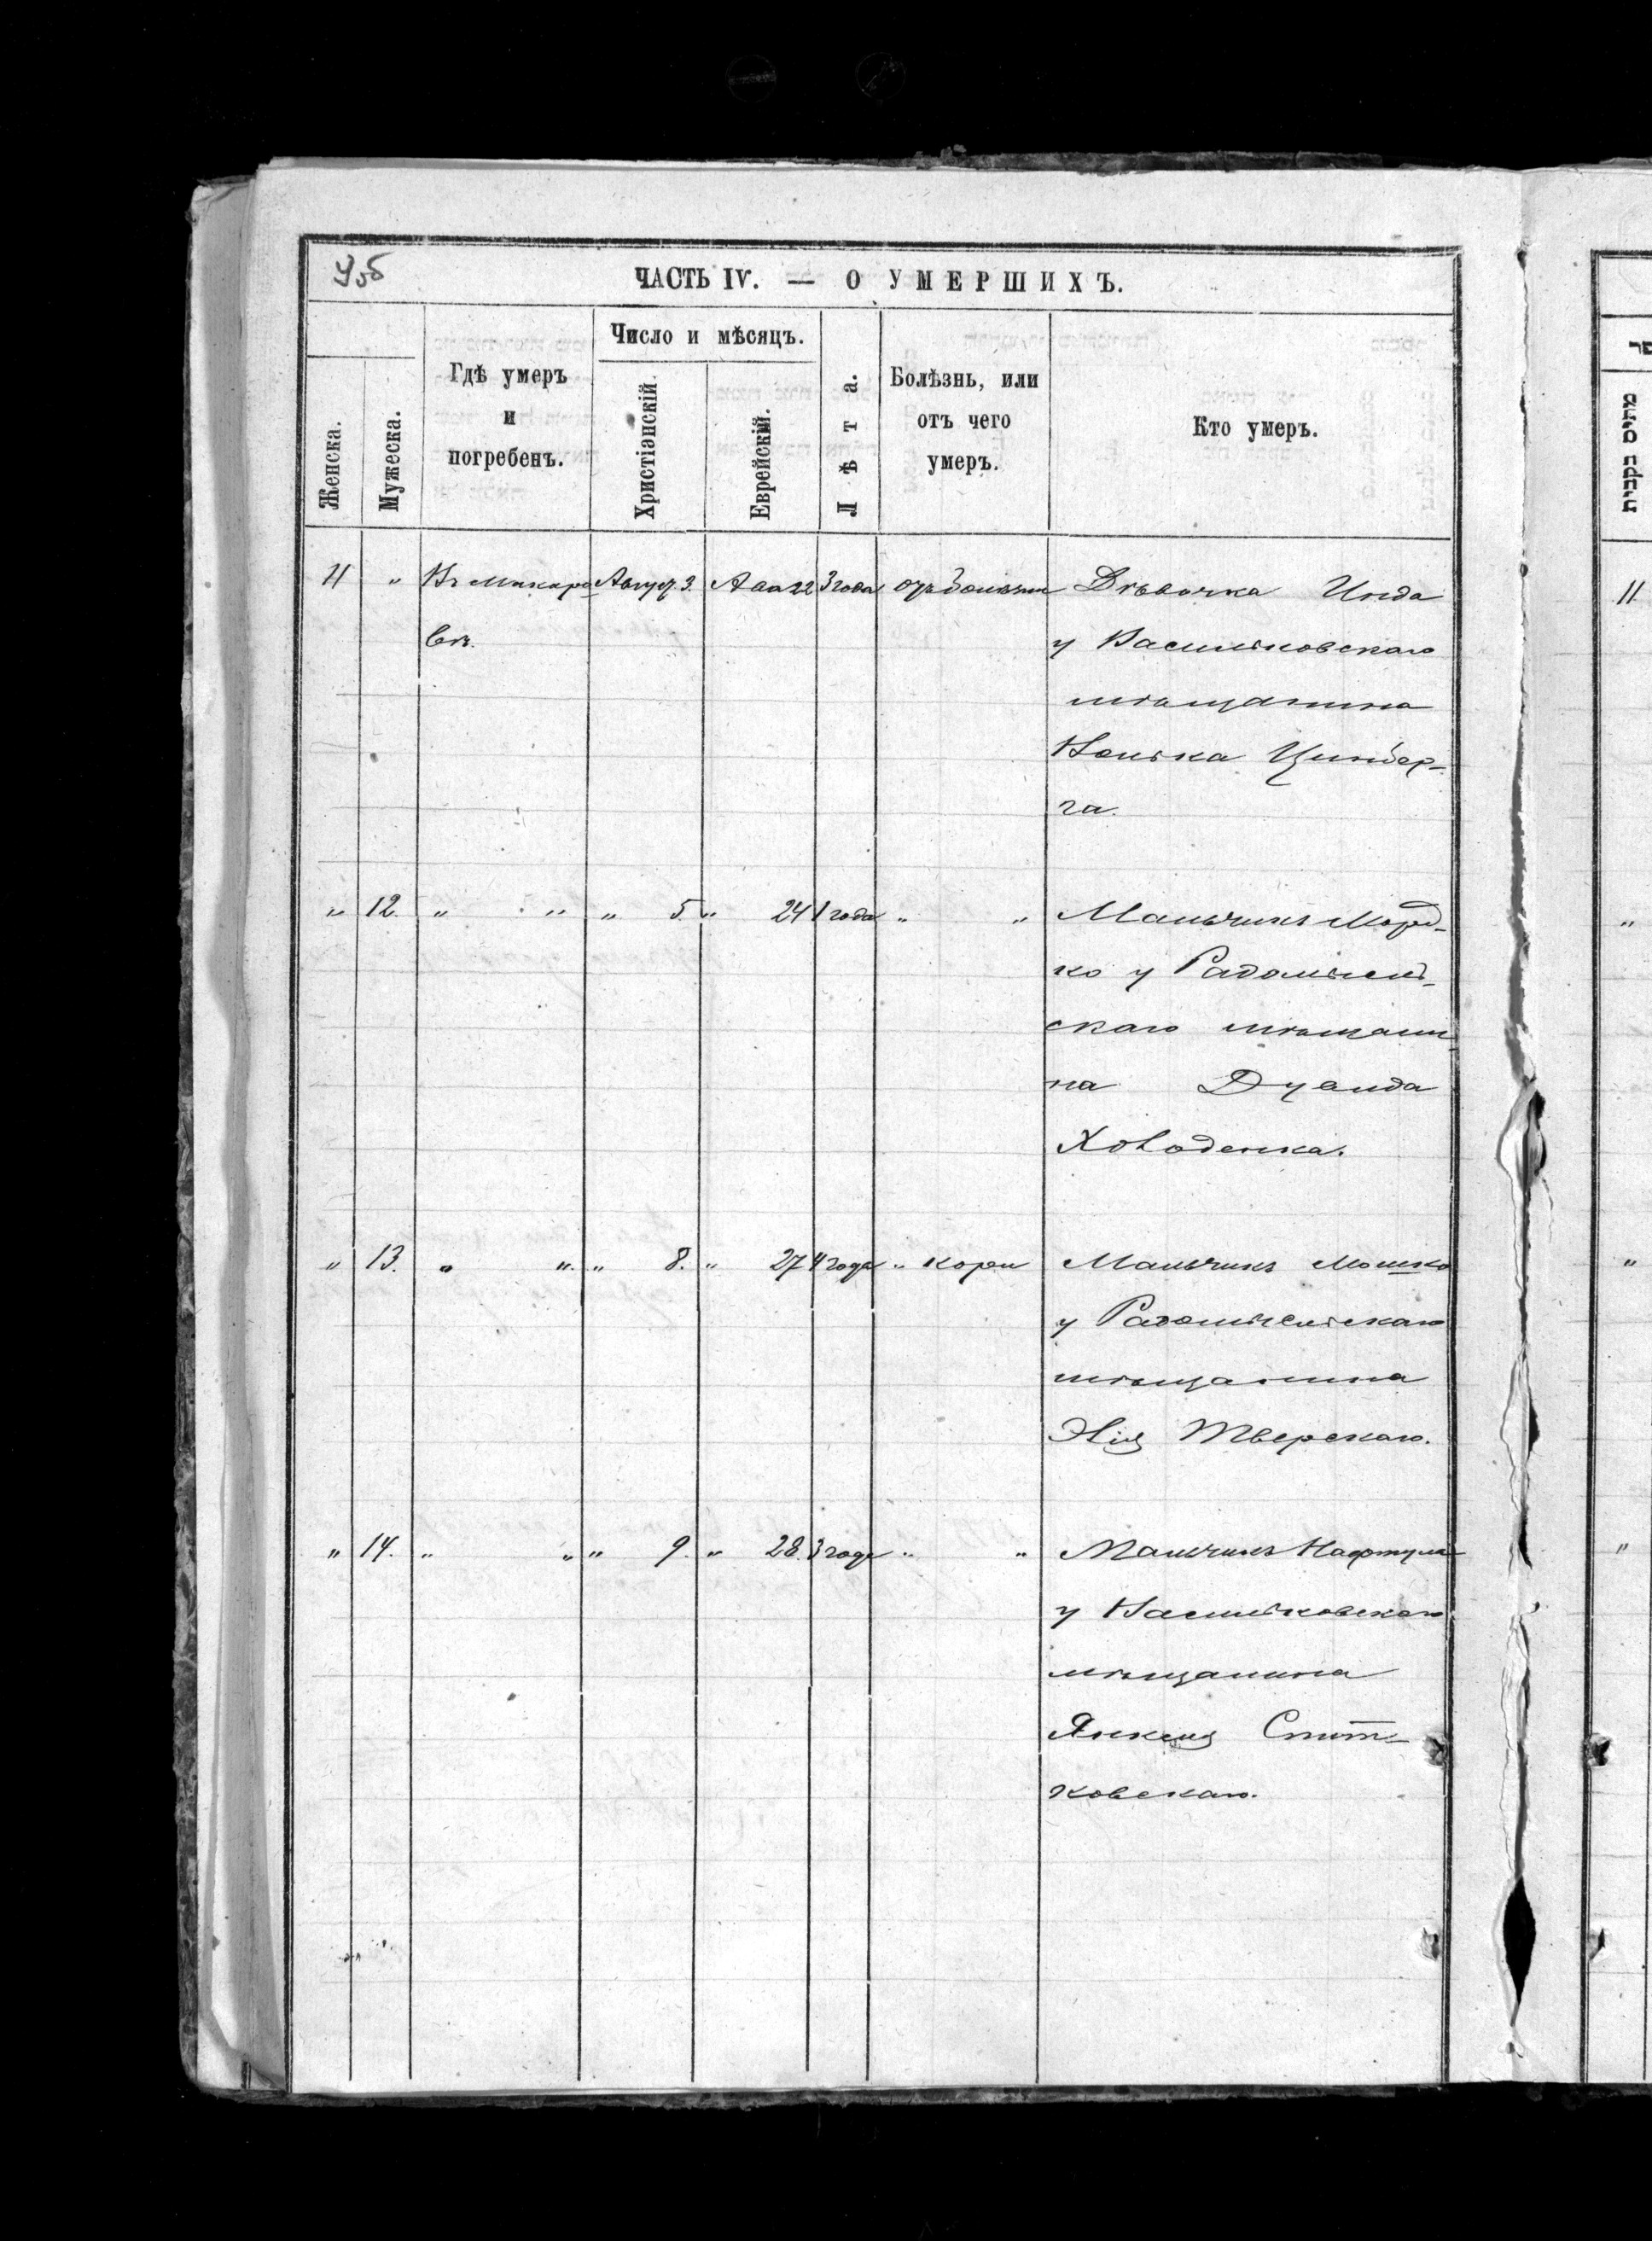 ЧАСТЬ IV. — О УМЕРШИХЪ.
Женска.
Мужеска.
Гдѣ умеръ
и
погребенъ.
Число и мѣсяцъ.
Христіанскій.
Еврейскій.
Лѣта.
Болѣзнь, или
отъ чего
умеръ.
Кто умеръ.
11 " Въ Макаро- Август. 3. Ава 22 3 года Дѣвочка
вѣ. у Васильковскаго
мѣщанина
га.
" 12. " " " 5. " 24 1 года " " Мальчикъ Морд-
ко у Радомысль-
скаго мѣщани-
на
Холоденка.
" 13. " " " 8. " 27 4 года " кори Мальчикъ Мошко
у Радомысльскаго
мѣщанина
Эліи Тверскаго.
" 14. " " " 9. " 28. 3 года " " Мальчикъ Нафтула
у Васильковскаго
мѣщанина
Янкеля
ковскаго.
11
"
"
"